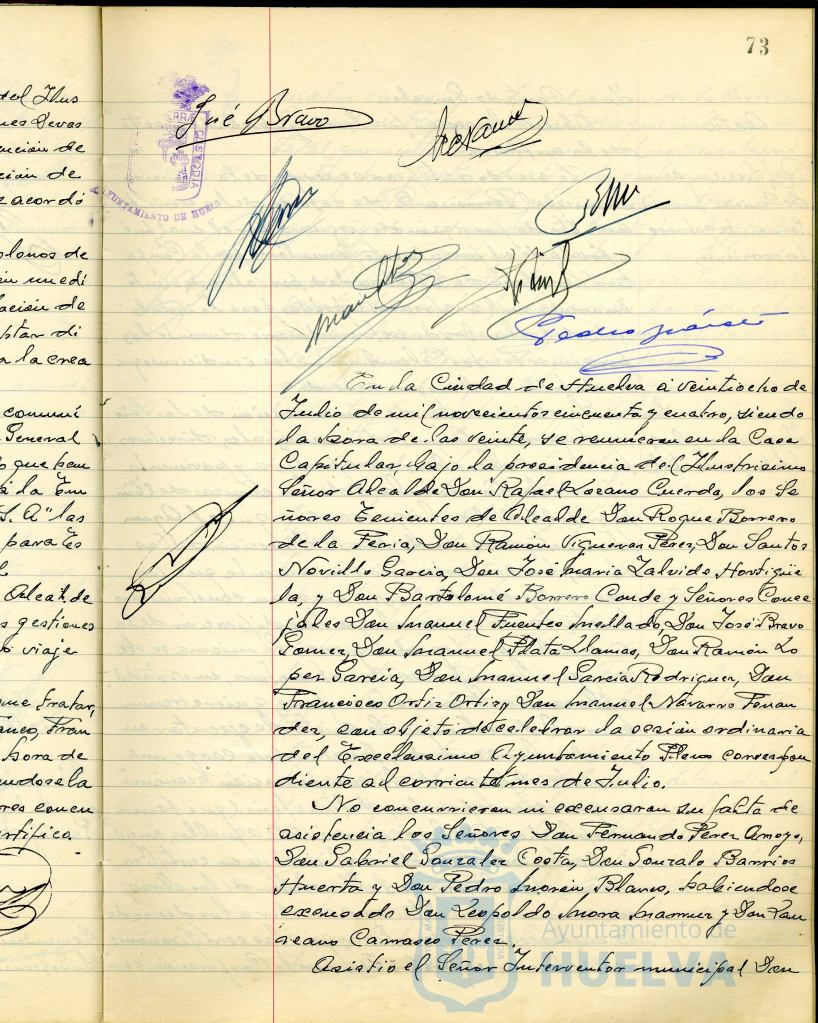 73
José Bravo
AYUNTAMIENTO DE HUELVA
CUSTODIA
Pedro
del Ilus
de
ción de
acordó
planos de
un edi
lación de
di
a la crea
comuni
General
que
a la Em
S. A" las
para Es
Alcalde
s gestiones
viaje
que tratar,
Fran
hora de
endose la
res concu
ertifico.
En la Ciudad de Huelva a veintiocho de
Julio de mil novecientos cincuenta y cuatro, siendo
la hora de las veinte, se reunieron en la Casa
Capitular, bajo la presidencia del Ilustrisimo
Señor Alcalde Don Rafael Lozano Cuerda, los Se
ñores Tenientes de Alcalde Don Roque Borrero
de la Feria, Don Ramón Vigueras Pérez, Don Santos
Novillo Garcia, Don José Maria Zalvide Hortigüe
la, y Don Bartolomé Borrero Conde y Señores Conce
jales Don Manuel Fuentes Mallado, Don José Bravo
Gomez, Don Manuel Plata Llamas, Don Ramón Lo
pez Garcia, Don Manuel Garcia Rodriguez, Don
Francisco Ortiz Ortiz y Don Manuel Navarro Fernan
dez, con objeto de celebrar la sesión ordinaria
del Excelentisimo Ayuntamiento Pleno correspon
diente al corriente mes de Julio.
No concurrieron ni excusaron su falta de
asistencia los Señores Don Fernando Perez Amoyo,
Don Gabriel Gonzalez Costa, Don Gonzalo Barrios
Huerta y Don Pedro Morón Blanco, habiendose
excusado Don Leopoldo Mora Mannuz y Don Lau
reano Carrasco Perez.
Asistio el Señor Interventor municipal Don
Ayuntamiento de
HUELVA